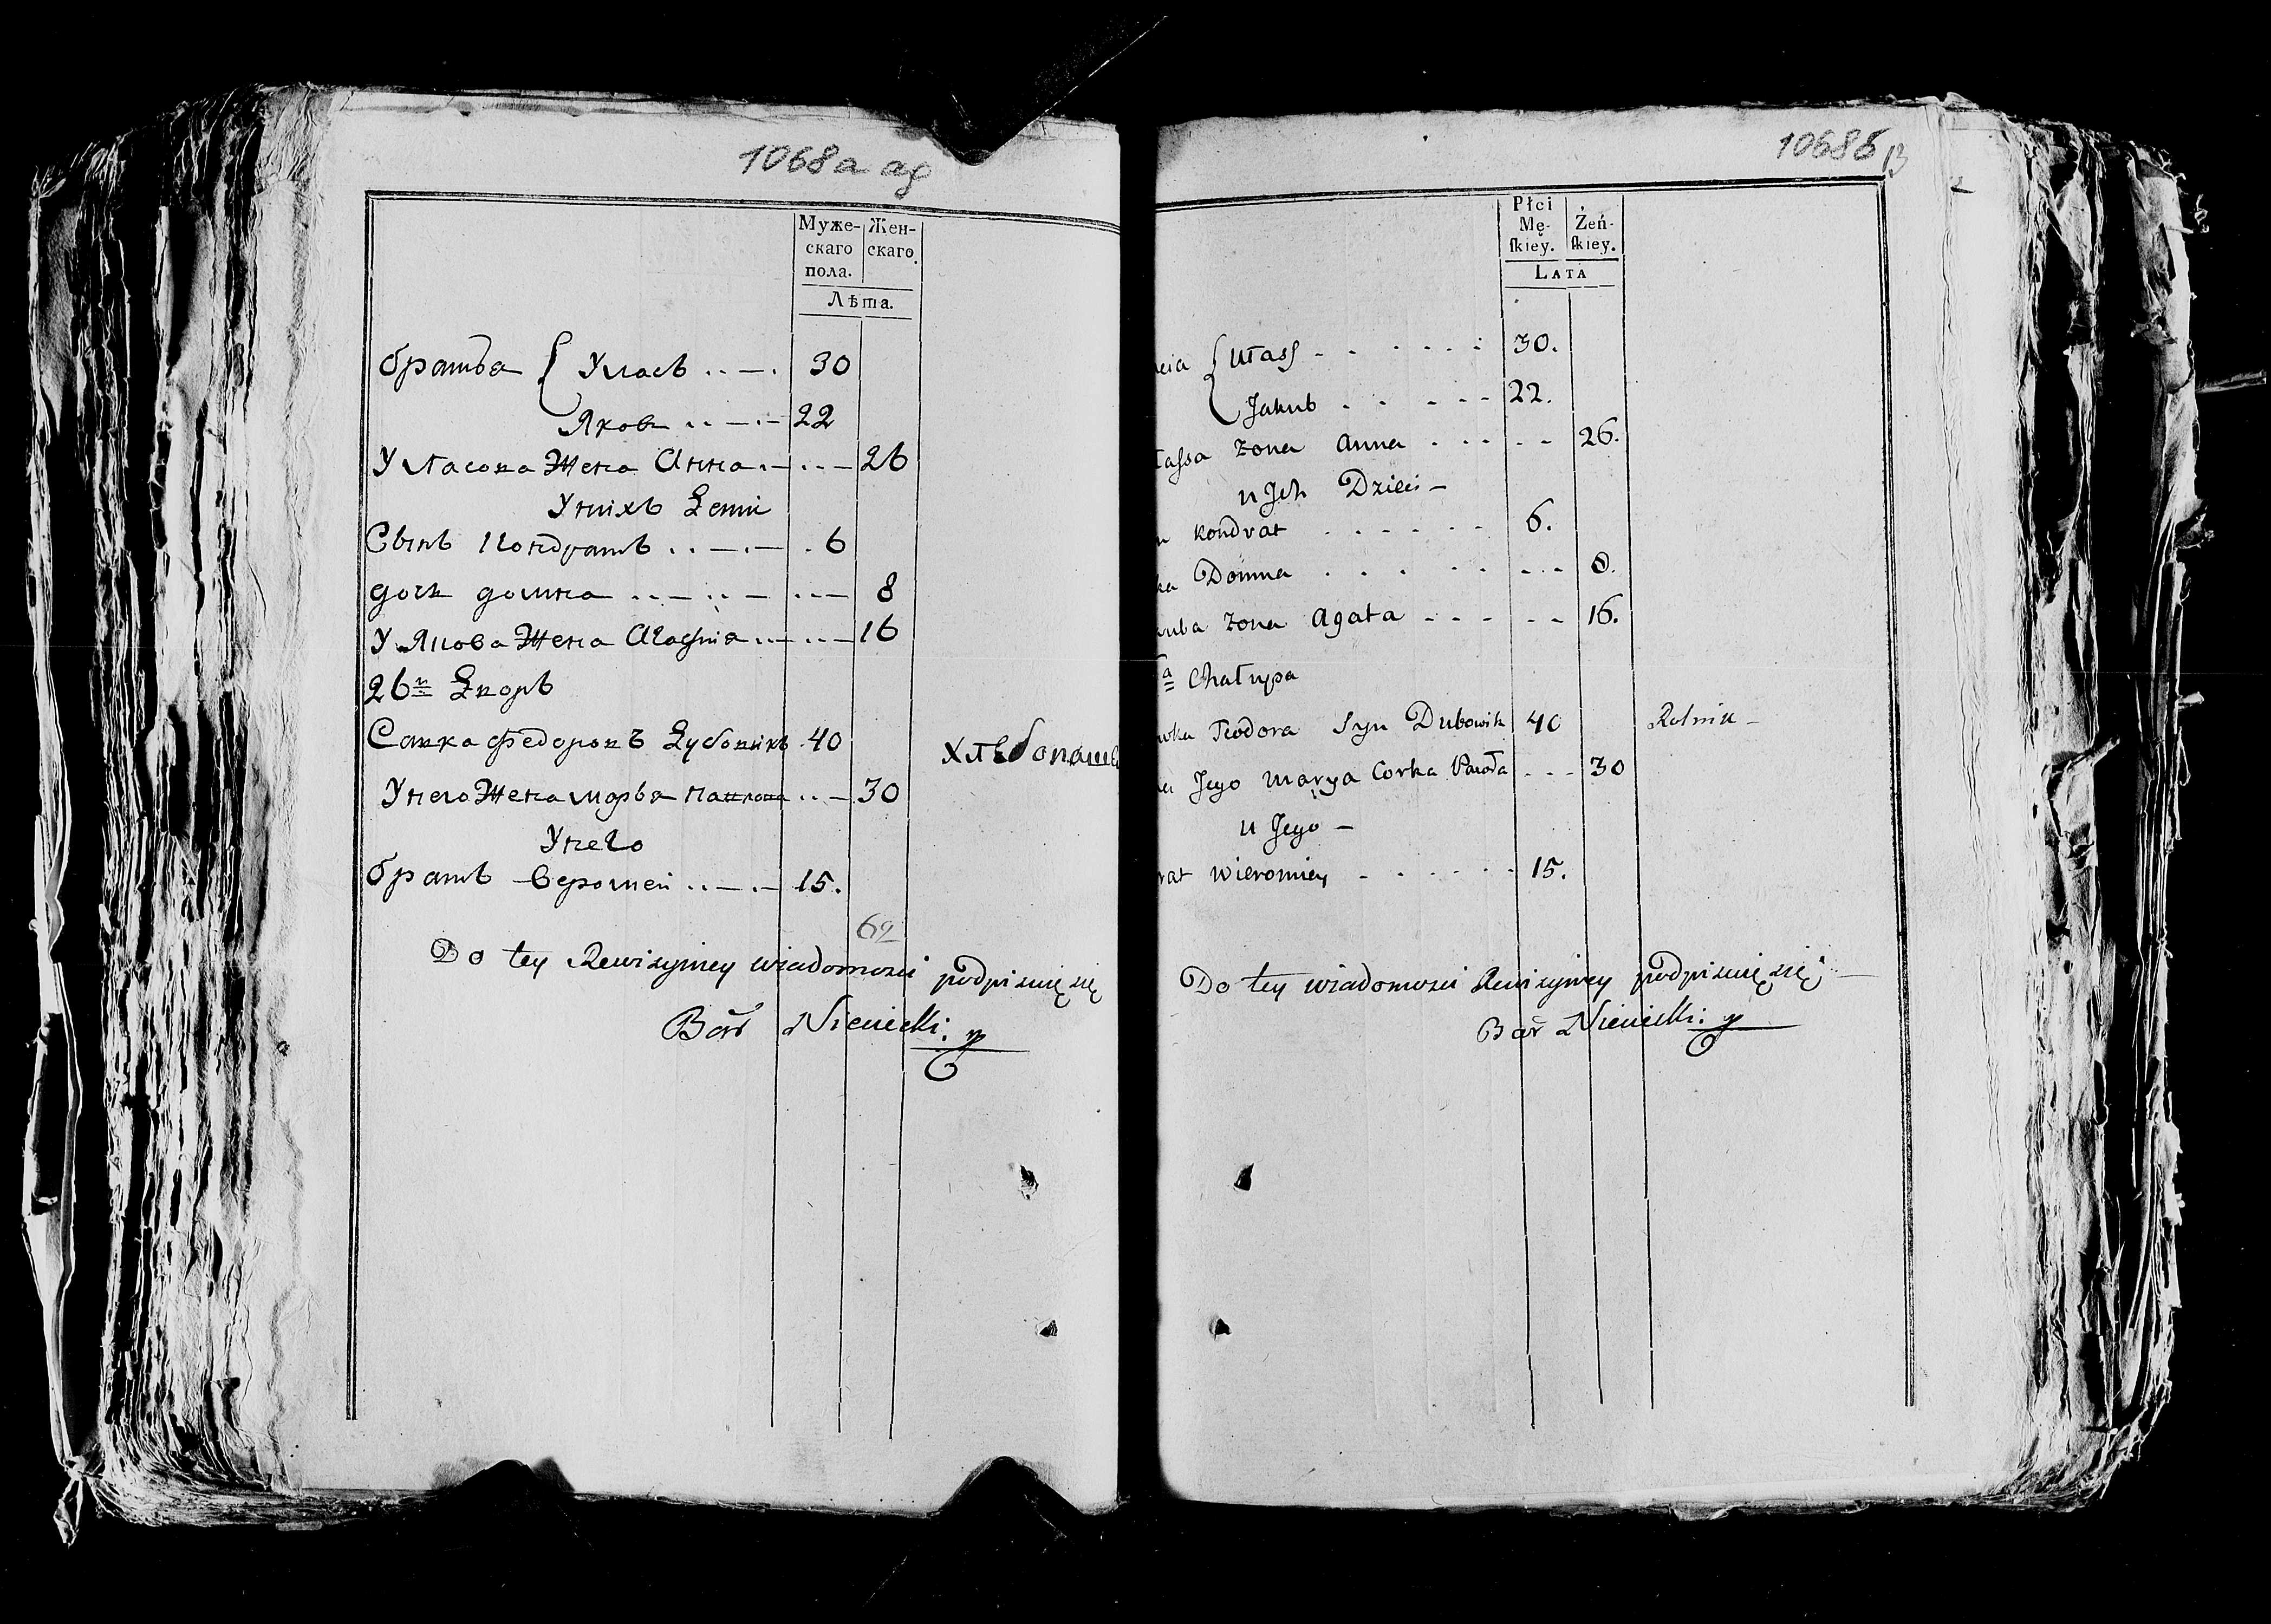 1068а
Муже-
скаго
пола.
Жен-
скаго.
Лѣта.
братья { Уласъ 30
Яковъ 22
Уласова Жена Анна 26
Унихъ Дети
Сынъ Кондратъ 6
дочь домна 8
У Якова Жена Агафия 16
26й Дворъ
Савка Федоровъ Дубовикъ 40 Хлѣбопаше
Унего Жена марья павлова 30
Унего
братъ Веромей 15.
62
Do tey Rewizyiney wiadomosci podpisuię się
Bar Nieniecki:
1068б 13
Płci
Mę-
ſkiey.
Żeń-
ſkiey.
Lata
cia { Ułass 30.
Jakub 22.
łassa Zona Anna 26.
u Jch Dzieci
n Kondrat 6.
ka Domna 8.
kuba Zona Agata 16.
a Chałupa
wka Teodora Syn Dubowik 40 Rolnik
Jego Marya Corka Pawła 30
u Jego
rat Wieromiey 15.
Do tey wiadomosci Rewizyiney podpisuię się
Bar Nieniecki: